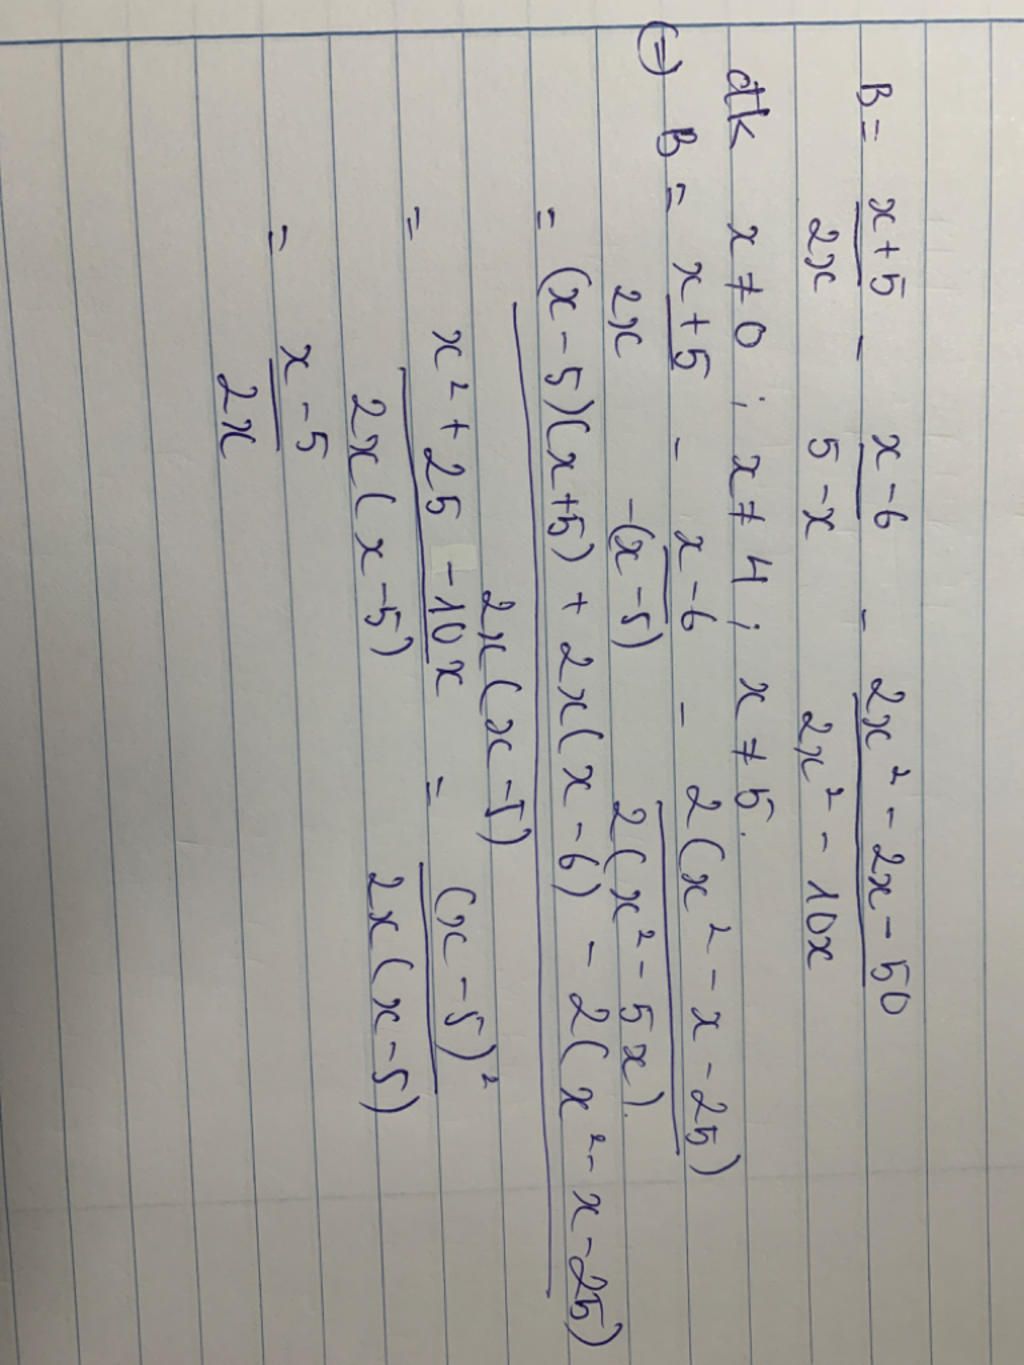 B = (x+5)/(2x) - (x-6)/(5-x) - (2x² - 2x - 50)/(2x² - 10x)
đk x ≠ 0 ; x ≠ 4 ; x ≠ 5.
(=) B = (x+5)/(2x) - (x-6)/(-(x-5)) - (2(x² - x - 25))/(2(x² - 5x)).
= ((x-5)(x+5) + 2x(x-6) - 2(x² - x - 25))/(2x(x-5))
= (x² + 25 - 10x)/(2x(x-5)) = ((x-5)²)/(2x(x-5))
= (x-5)/(2x)